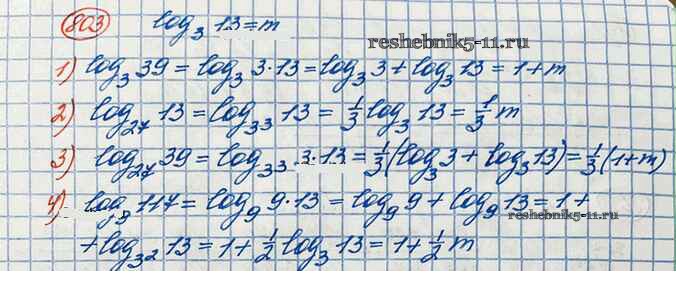 803 log₃ 13 = m
reshebnik5-11.ru
1) log₃ 39 = log₃ 3·13 = log₃ 3 + log₃ 13 = 1 + m
2) log₂₇ 13 = log₃³ 13 = 1/3 log₃ 13 = 1/3 m
3) log₂₇ 39 = log₃³ 3·13 = 1/3 (log₃ 3 + log₃ 13) = 1/3 (1 + m)
4) log₉ 117 = log₉ 9·13 = log₉ 9 + log₉ 13 = 1 +
reshebnik5-11.ru
+ log₃² 13 = 1 + 1/2 log₃ 13 = 1 + 1/2 m